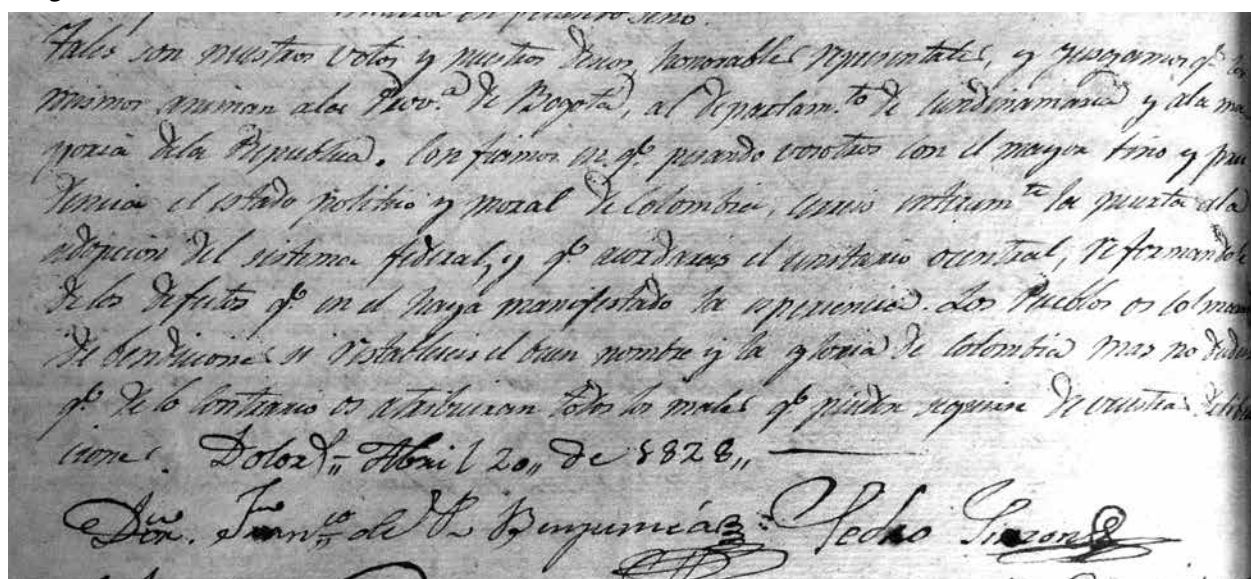 en nuestro seno.
Tales son nuestros votos y nuestros deseos, honorables representates, y juzgamos qᵉ los
mismos animan ala Prov.ª de Bogotá, al Departam.ᵗᵒ de Cundinamarca y ala ma
yoria dela Republica. Confiamos en qᵉ pesando vosotros con el mayor tino y pru
dencia el estado politico y moral de Colombia, cerreis enteramᵗᵉ la puerta ala
adopcion del sistema federal, y qᵉ acordareis el unitario o central, reformandole
delos defectos qᵉ en el haya manifestado la esperiencia. Los Pueblos os colmaran
de bendiciones si restableceis el buen nombre y la gloria de Colombia mas no
qᵉ de lo contrario os atribuiran todos los males qᵉ puedan seguirse de vuestras
ciones. Dolores Abril 20,, de 1828,,
Franᶜᵒ de P. Benjumea Pedro Pinzon